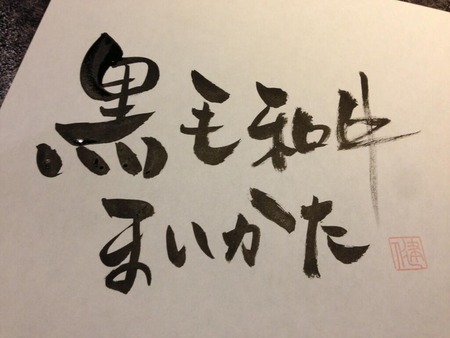 黒毛和牛
まいかた